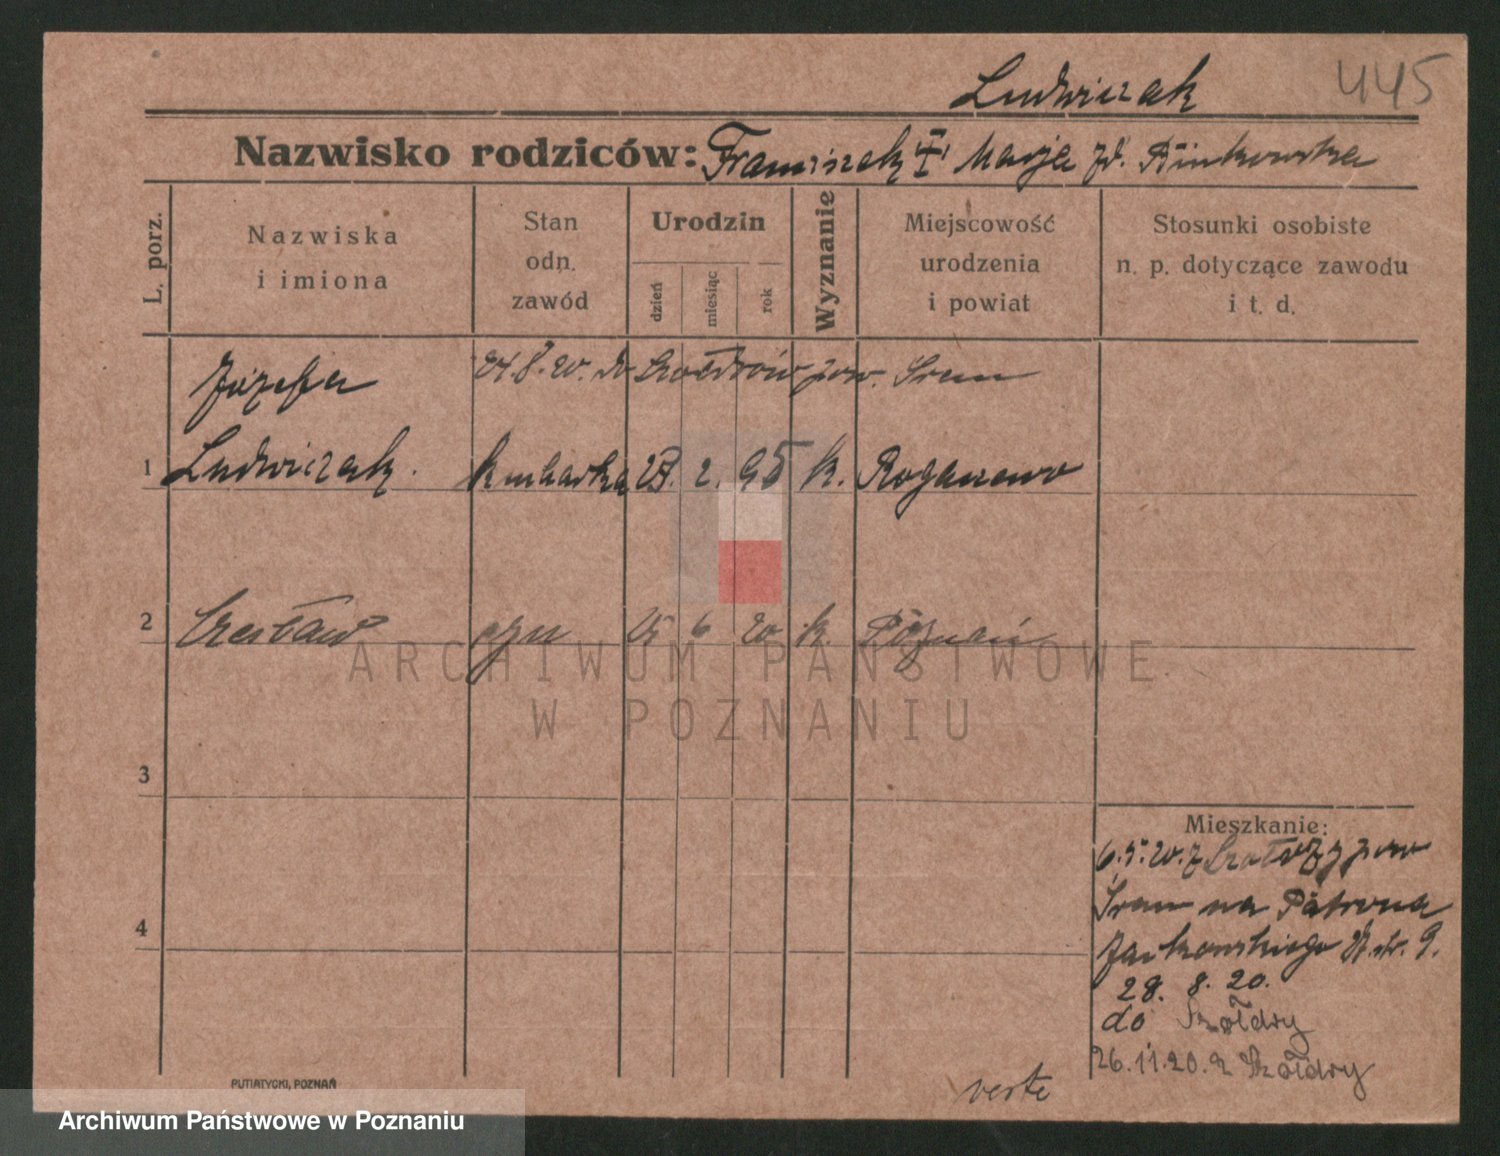 Ludwiczak 445
Nazwisko rodziców: Franciszek Marja zd. Binkowska
L. porz.
Nazwiska
i imiona
Stan
odn.
zawód
Urodzin
dzień
miesiąc
rok
Wyznanie
Miejscowość
urodzenia
i powiat
Stosunki osobiste
n. p. dotyczące zawodu
i t. d.
24.8.20. do pow. Śrem
Józefa
1 Ludwiczak. kucharka 2. 95 k. Rogaczewo
2 Czesław syn 25 6 20 k. Poznań
3
4
Mieszkanie:
6.5.20. z pow
Śrem na Patrona
Jackowskiego 9.
28. 8. 20.
do Szołdry
26.11.20. z Szołdry
verte
PUTIATYCKI, POZNAŃ
ARCHIWUM PAŃSTWOWE
W POZNANIU
Archiwum Państwowe w Poznaniu